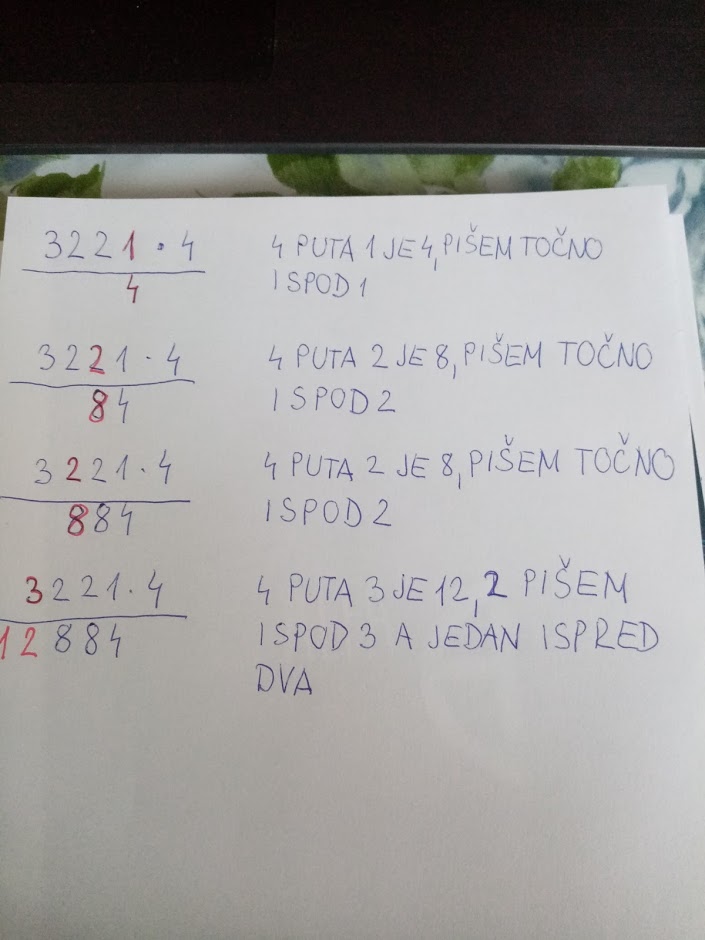 3221 · 4 4 PUTA 1 JE 4, PIŠEM TOČNO
4 ISPOD 1
3221 · 4 4 PUTA 2 JE 8, PIŠEM TOČNO
84 ISPOD 2
3221 · 4 4 PUTA 2 JE 8, PIŠEM TOČNO
884 ISPOD 2
3221 · 4 4 PUTA 3 JE 12, 2 PIŠEM
12884 ISPOD 3 A JEDAN ISPRED
DVA